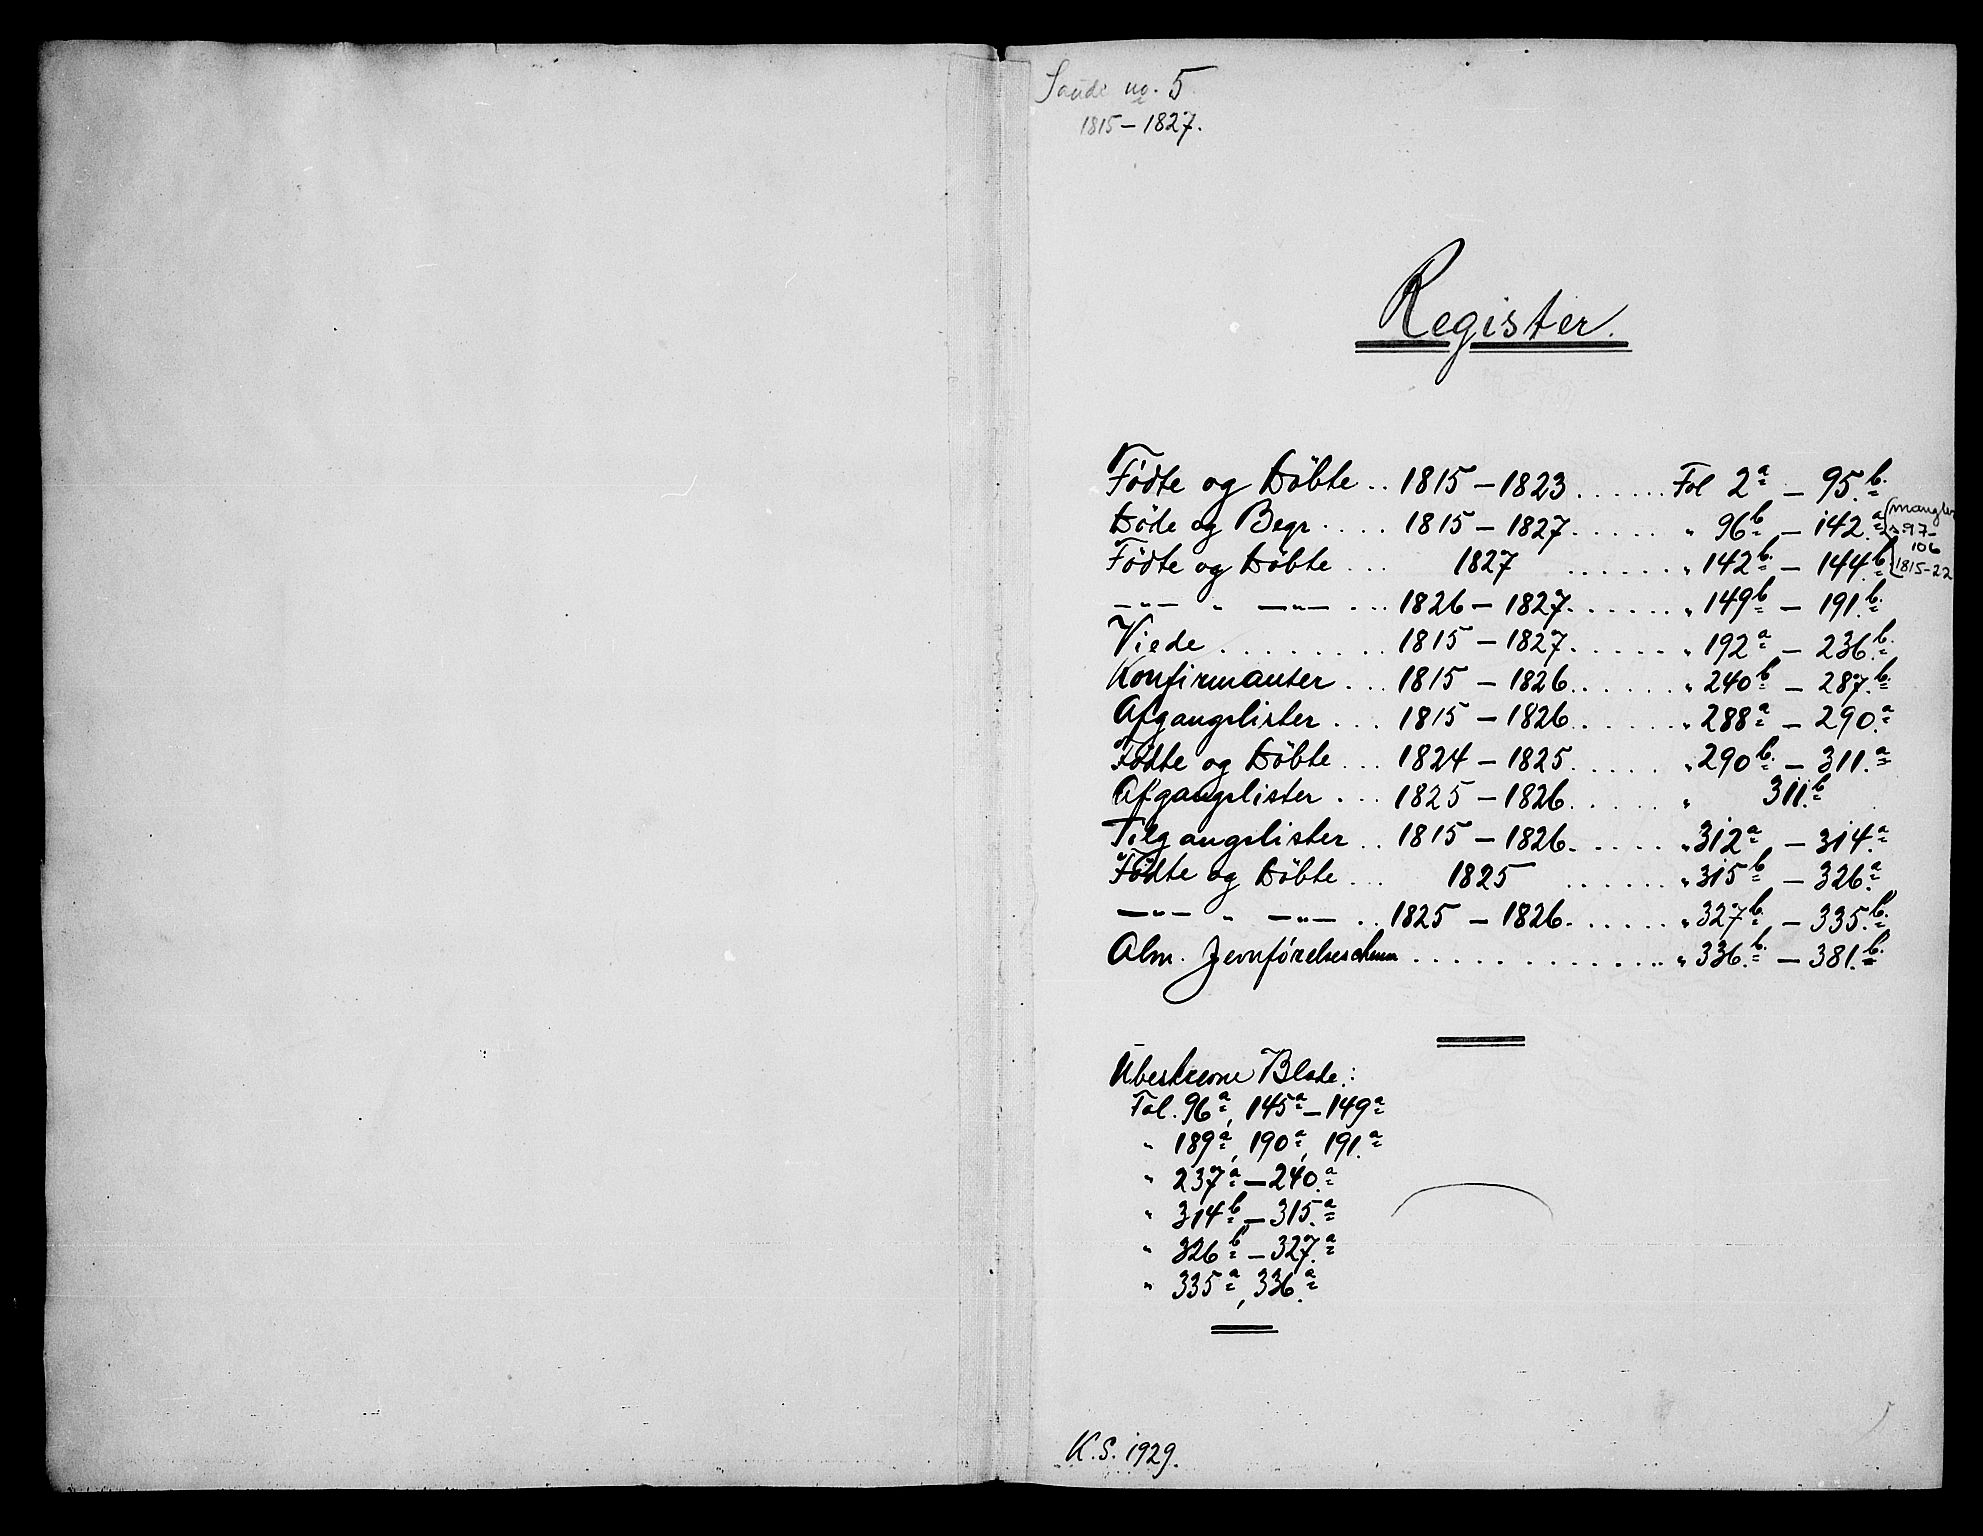 Sande no. 5
1815 – 1827.
Register.
Födte og Döbte .. 1815 – 1823 ...... Fol 2a – 95.b.
Döde og Begr .... 1815 – 1827 ...... " 96b – 142.a (mangler
s. 97-
106
1815-22
Födte og Döbte ... 1827 ...... " 142b. – 144.b
—"— " —"— ... 1826 – 1827 ...... " 149b – 191.b.
Viede ........ 1815 – 1827 ...... " 192a – 236.b.
Konfirmanter ... 1815 – 1826 ...... " 240b – 287.b
Afgangslister ... 1815 – 1826 ...... " 288a – 290.a
Födte og Döbte ... 1824 – 1825 ..... " 290b. – 311.a
Afgangslister ... 1825 – 1826 ..... " 311.b
Tilgangslister .. 1815 – 1826 ..... " 312a – 314.a
Födte og Döbte ... 1825 ...... " 315b – 326.a
—"— " —"— .. 1825 – 1826 ...... " 327b. – 335.b.
Alm. Jevnförelseschema ............. " 336.b. – 381.b.
Ubeskrevne Blade.:
Fol. 96a, 145a – 149a
" 189a, 190a, 191.a
" 237a – 240.a
" 314b – 315.a
" 326b – 327.a
" 335a, 336.a
K.S. 1929.